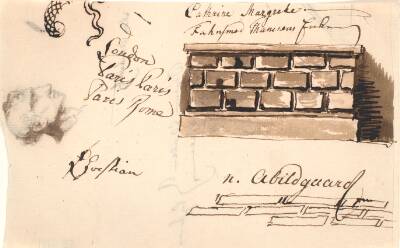 Cathrine Margrete
London
Paris Paris
Paris Rome
Christian
n. Abildgaard